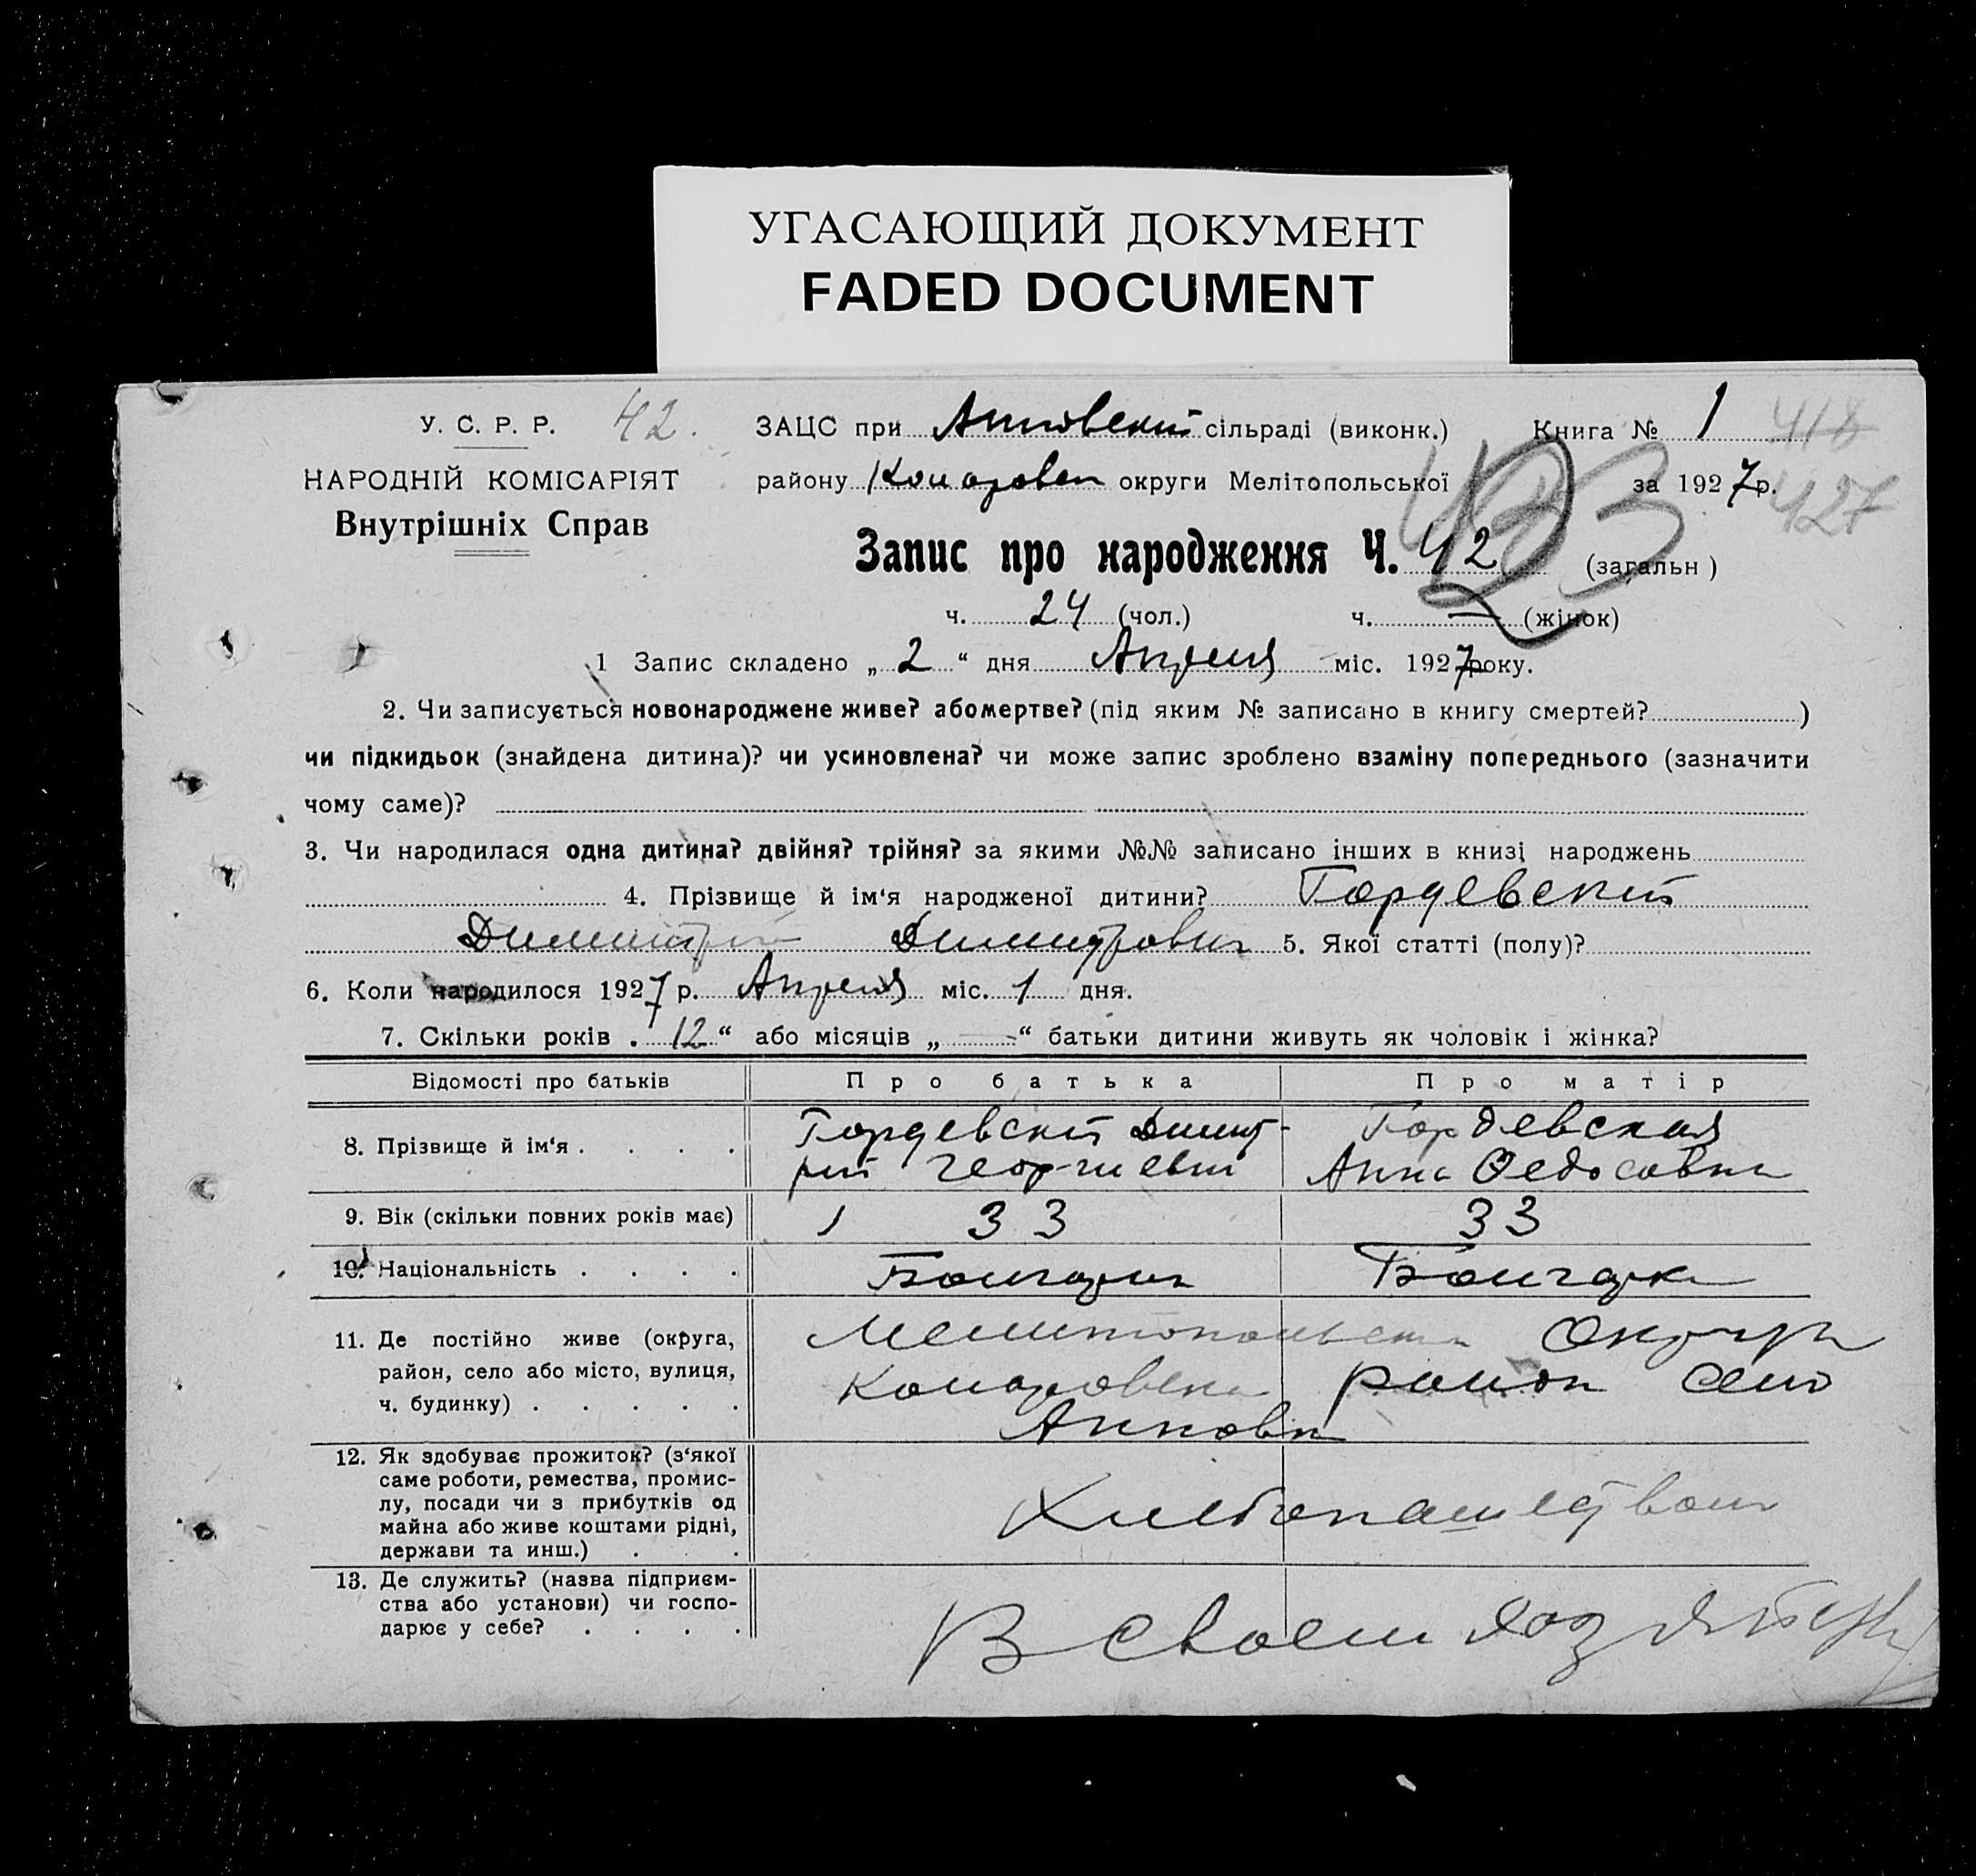 УГАСАЮЩИЙ ДОКУМЕНТ
FADED DOCUMENT
У. С. Р. Р. 42.
НАРОДНІЙ КОМІСАРІЯТ
Внутрішніх Справ
ЗАЦС при Анновский сільраді (виконк.) Книга № 1 418
району округи Мелітопольської за 1927 р. 427
Запис про народження Ч. 42 (загальн)
ч. 24 (чол.) ч. — (жінок)
1 Запис складено „ 2 “ дня Апреля міс. 1927 року.
2. Чи записується новонароджене живе? або мертве? (під яким № записано в книгу смертей? )
чи підкидьок (знайдена дитина)? чи усиновлена? чи може запис зроблено взаміну попереднього (зазначити
чому саме)?
3. Чи народилася одна дитина? двійня? трійня? за якими №№ записано інших в книзі народжень
4. Прізвище й ім‘я народженої дитини? Гордевский
Димитрий Димитрович 5. Якої статті (полу)?
6. Коли народилося 1927 р. Апреля міс. 1 дня.
7. Скільки років „ 12 “ або місяців „ — “ батьки дитини живуть як чоловік і жінка?
Відомості про батьків Про батька Про матір
8. Прізвище й ім‘я . . . . Гордевский Димит- Гордевская
рий Георгиевич Анна Федосовна
9. Вік (скільки повних років має) 33 33
10. Національність . . . . Болгарин Болгарка
11. Де постійно живе (округа, Мелитопольская Округа
район, село або місто, вулиця, район село
ч. будинку) . . . . . Анновка
12. Як здобуває прожиток? (з‘якої
саме роботи, ремества, промис-
лу, посади чи з прибутків од Хлебопашеством
майна або живе коштами рідні,
держави та инш.) . . .
13. Де служить? (назва підприєм-
ства або установи) чи госпо- В своем
дарює у себе? . . . .